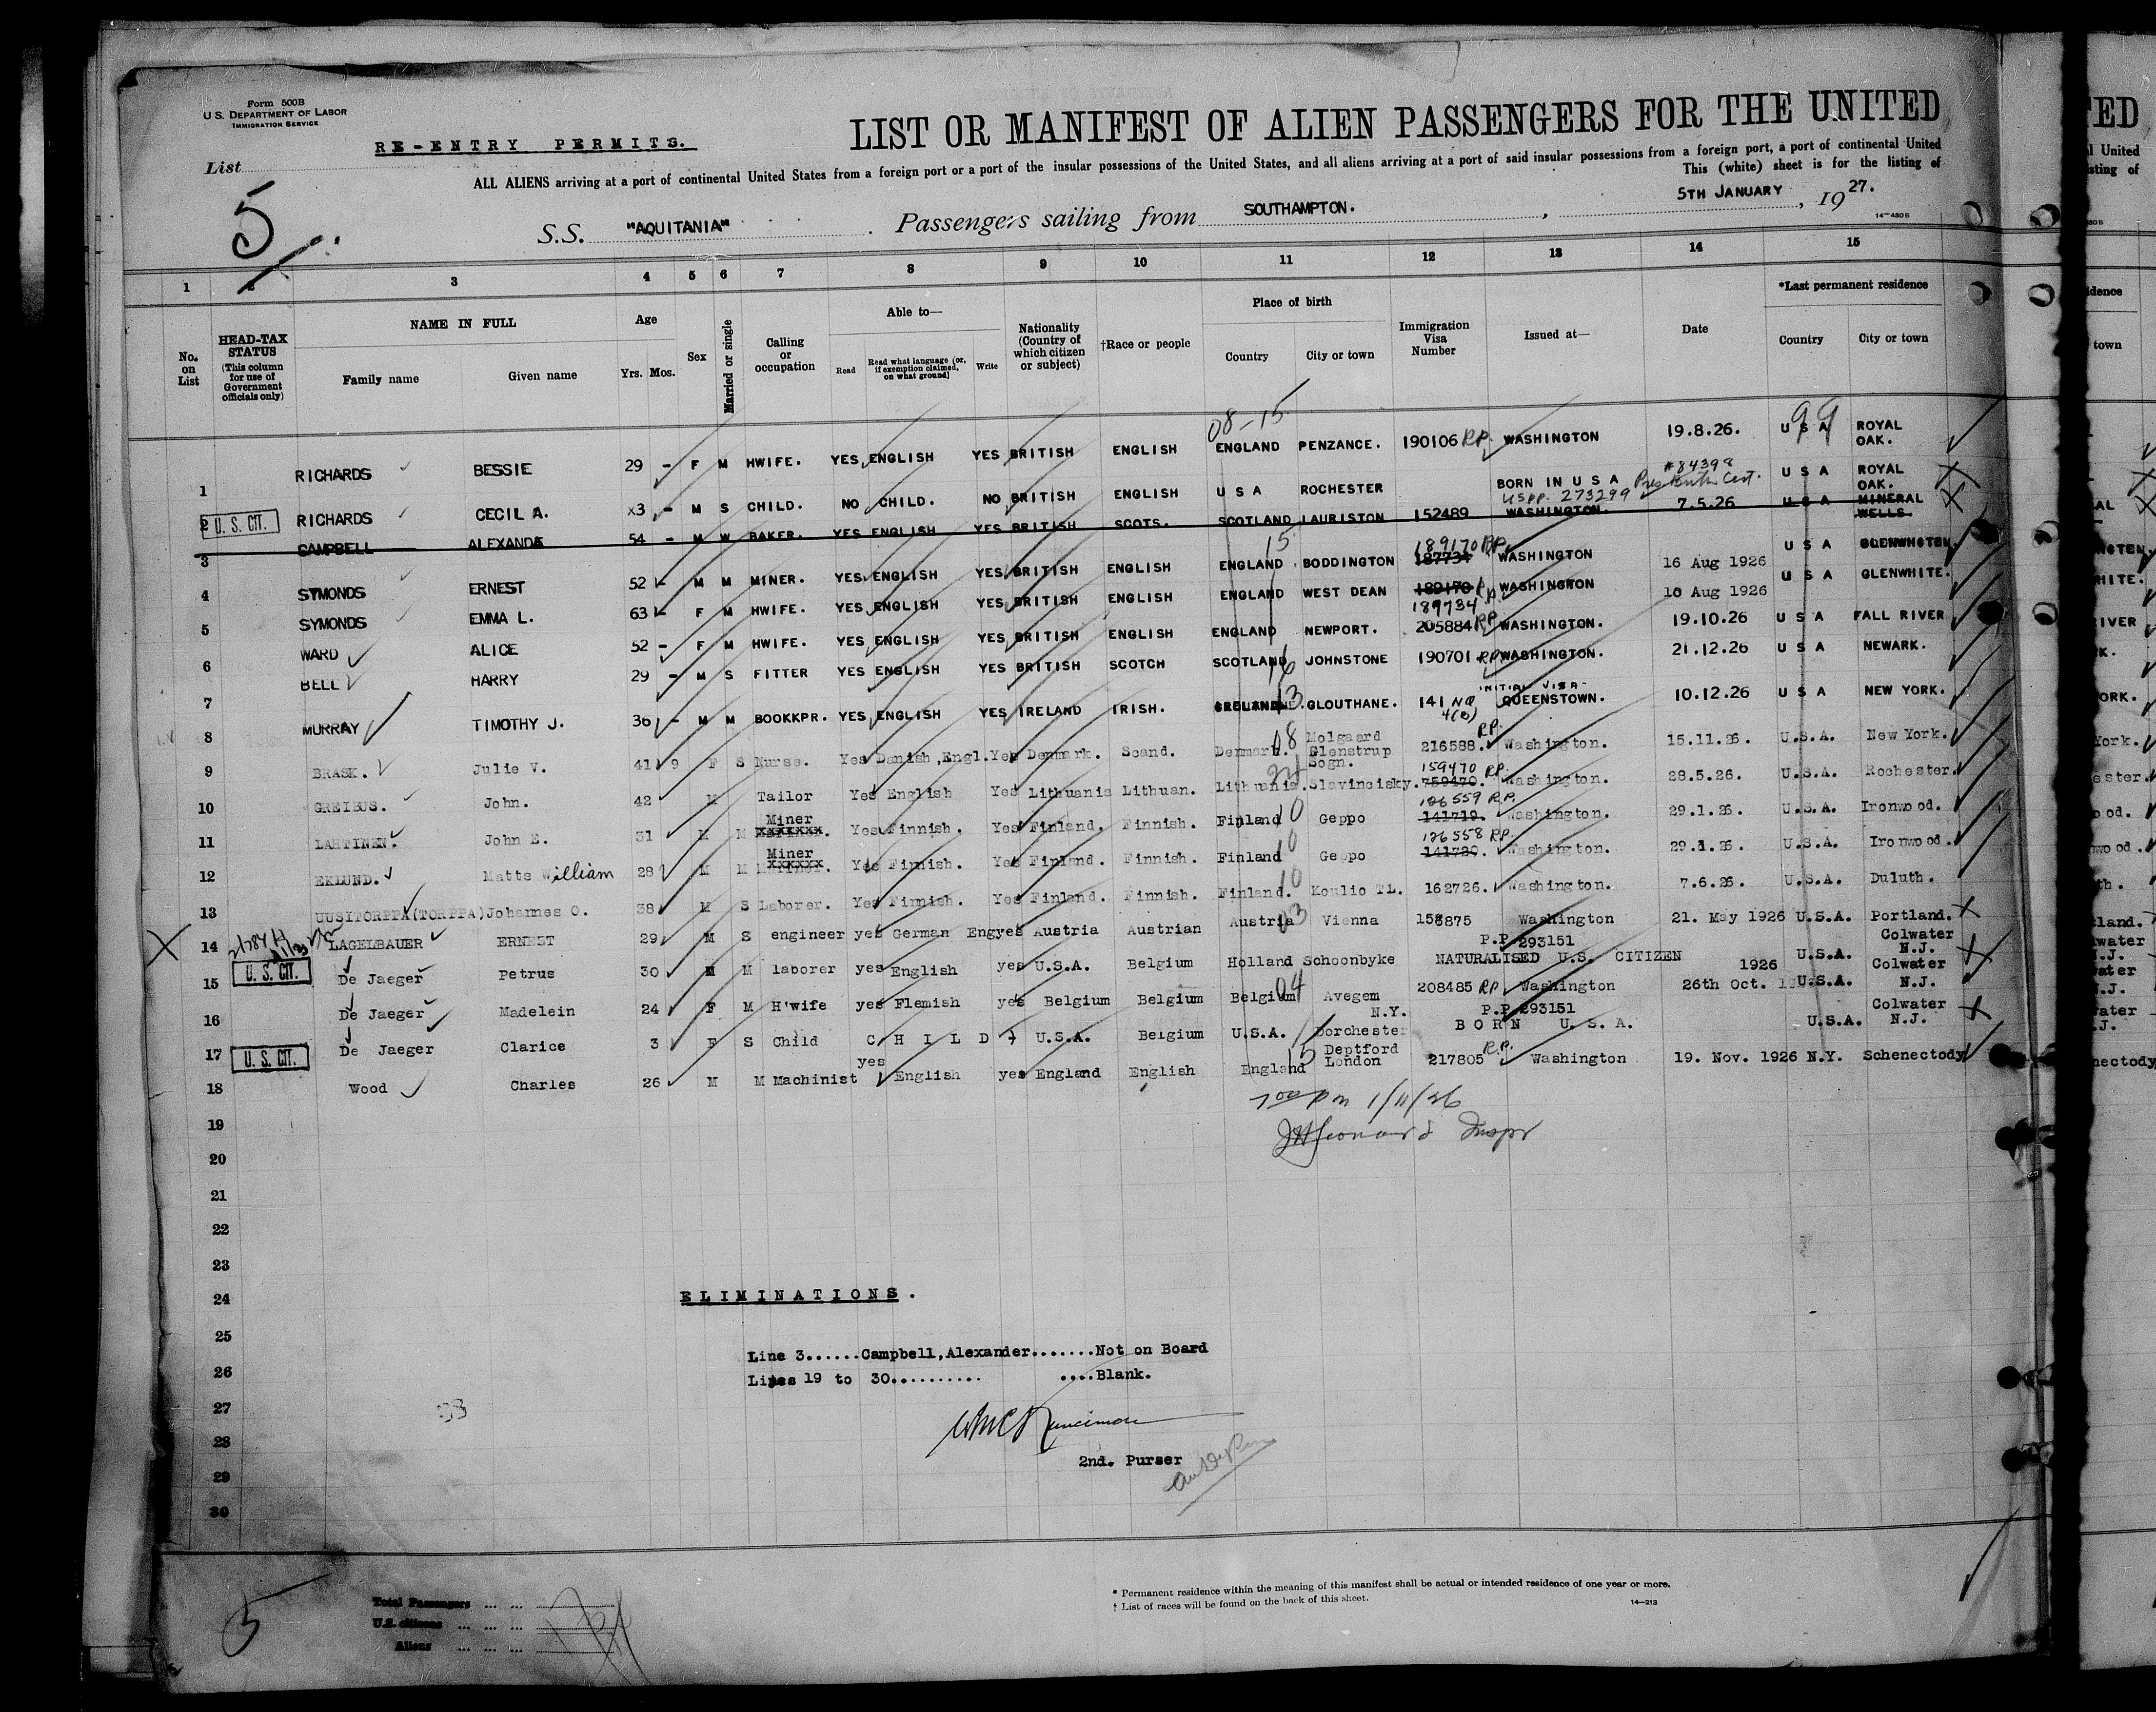 Form 500B
U. S. DEPARTMENT OF LABOR
IMMIGRATION SERVICE
RE-ENTRY PERMITS.
LIST OR MANIFEST OF ALIEN PASSENGERS FOR THE UNITED
List
ALL ALIENS arriving at a port of continental United States from a foreign port or a port of the insular possessions of the United States, and all aliens arriving at a port of said insular possessions from a foreign port, a port of continental United
This (white) sheet is for the listing of
5
S.S. "AQUITANIA" Passengers sailing from SOUTHAMPTON. , 5TH JANUARY , 19 27.
14—480 B
1 2 3 4 5 6 7 8 9 10 11 12 13 14 15
No. on List
HEAD-TAX STATUS (This column for use of Government officials only)
NAME IN FULL
Family name Given name
Age Yrs. Mos.
Sex
Married or single
Calling or occupation
Able to—
Read Read what language (or, if exemption claimed, on what ground) Write
Nationality (Country of which citizen or subject)
†Race or people
Place of birth
Country City or town
Immigration Visa Number
Issued at—
Date
*Last permanent residence
Country City or town
08-15 99
1 RICHARDS BESSIE 29 - F M HWIFE. YES ENGLISH YES BRITISH ENGLISH ENGLAND PENZANCE. 190106 R.P. WASHINGTON 19.8.26. U S A ROYAL OAK.
2 U. S. CIT. RICHARDS CECIL A. x3 - M S CHILD. NO CHILD. NO BRITISH ENGLISH U S A ROCHESTER BORN IN U S A USPP. 273299 #84398 U S A ROYAL OAK.
3 CAMPBELL ALEXANDE 54 - M W BAKER. YES ENGLISH YES BRITISH SCOTS. SCOTLAND LAURISTON 152489 WASHINGTON. 7.5.26 U S A MINERAL WELLS.
4 SYMONDS ERNEST 52 - M M MINER. YES ENGLISH YES BRITISH ENGLISH 15 ENGLAND BODDINGTON 189170 R.P. 187734 WASHINGTON 16 Aug 1926 U S A GLENWHSTEN.
5 SYMONDS EMMA L. 63 - F M HWIFE. YES ENGLISH YES BRITISH ENGLISH ENGLAND WEST DEAN 189170 RP 189734 WASHINGTON 10 Aug 1926 U S A GLENWHITE.
6 WARD ALICE 52 - F M HWIFE. YES ENGLISH YES BRITISH ENGLISH ENGLAND NEWPORT. 205884 RP WASHINGTON. 19.10.26 U S A FALL RIVER
7 BELL HARRY 29 - M S FITTER YES ENGLISH YES BRITISH SCOTCH SCOTLAND 16 JOHNSTONE 190701 RP WASHINGTON. 21.12.26 U S A NEWARK.
8 MURRAY TIMOTHY J. 36 - M M BOOKKPR. YES ENGLISH YES IRELAND IRISH. IRELAND 13 GLOUTHANE. 141 NQ 4(b) INITIAL VISA- QUEENSTOWN. 10.12.26 U S A NEW YORK.
9 BRASK. Julie V. 41 9 F S Nurse. Yes Danish,Engl. Yes Denmark. Scand. Denmark. 08 Molgaard Glenstrup Sogn. 216588. RP. Washington. 15.11.26. U.S.A. New York.
10 GREIBUS. John. 42 M Tailor Yes English Yes Lithuania Lithuan. Lithuania. Slavincisky. 159470 RP. 759470. Washington. 28.5.26. U.S.A. Rochester.
11 LAHTINEN. John E. 31 M M Miner Yes Finnish. Yes Finland. Finnish. Finland 10 Geppo 126559 R.P. 141719. Washington. 29.1.26. U.S.A. Ironwood.
12 EKLUND. Matts William 28 M M Miner Yes Finnish. Yes Finland. Finnish. Finland 10 Geppo 126558 R.P. 141720. Washington. 29.1.26. U.S.A. Ironwood.
13 UUSITORPPA(TORPPA) Johannes O. 38 M S Laborer. Yes Finnish. Yes Finland. Finnish. Finland. 10 Koulio TL. 162726. Washington. 7.6.26. U.S.A. Duluth.
14 LAGELBAUER ERNEST 29 M S engineer yes German Eng yes Austria Austrian Austria 03 Vienna 158875 Washington 21. May 1926 U.S.A. Portland.
15 U. S. CIT. De Jaeger Petrus 30 M M laborer yes English yes U.S.A. Belgium Holland Schoonbyke P.P. 293151 NATURALISED U.S. CITIZEN U.S.A. Colwater N.J.
16 De Jaeger Madelein 24 F M H'wife yes Flemish yes Belgium Belgium Belgium 04 Avegem 208485 RP Washington 26th Oct. 1926 U.S.A. Colwater N.J.
17 U. S. CIT. De Jaeger Clarice 3 F S Child C H I L D U.S.A. Belgium U.S.A. N.Y. Dorchester P.P. 293151 BORN U.S.A. U.S.A. Colwater N.J.
18 Wood Charles 26 M M Machinist yes English yes England English England 15 Deptford London 217805 R.P. Washington 19. Nov. 1926 N.Y. Schenectody
19
20
21
22
23
24
25
26
27
28
29
30
1/11/26
Inspr
ELIMINATIONS.
Line 3......Campbell,Alexander.......Not on Board
Lines 19 to 30.......... ....Blank.
2nd. Purser
5
Total Passengers ... ...
U.S. citizens ... ... ...
Aliens ... ... ...
* Permanent residence within the meaning of this manifest shall be actual or intended residence of one year or more.
† List of races will be found on the back of this sheet.
14—213